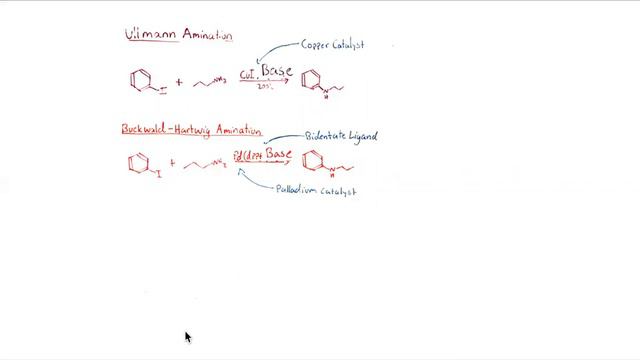 Ullmann Amination
Copper Catalyst
I + NH2 CuI, Base
20%
N
H
Buckwald-Hartwig Amination
Bidentate Ligand
I + NH2 Pd(dppf Base
N
H
Palladium Catalyst